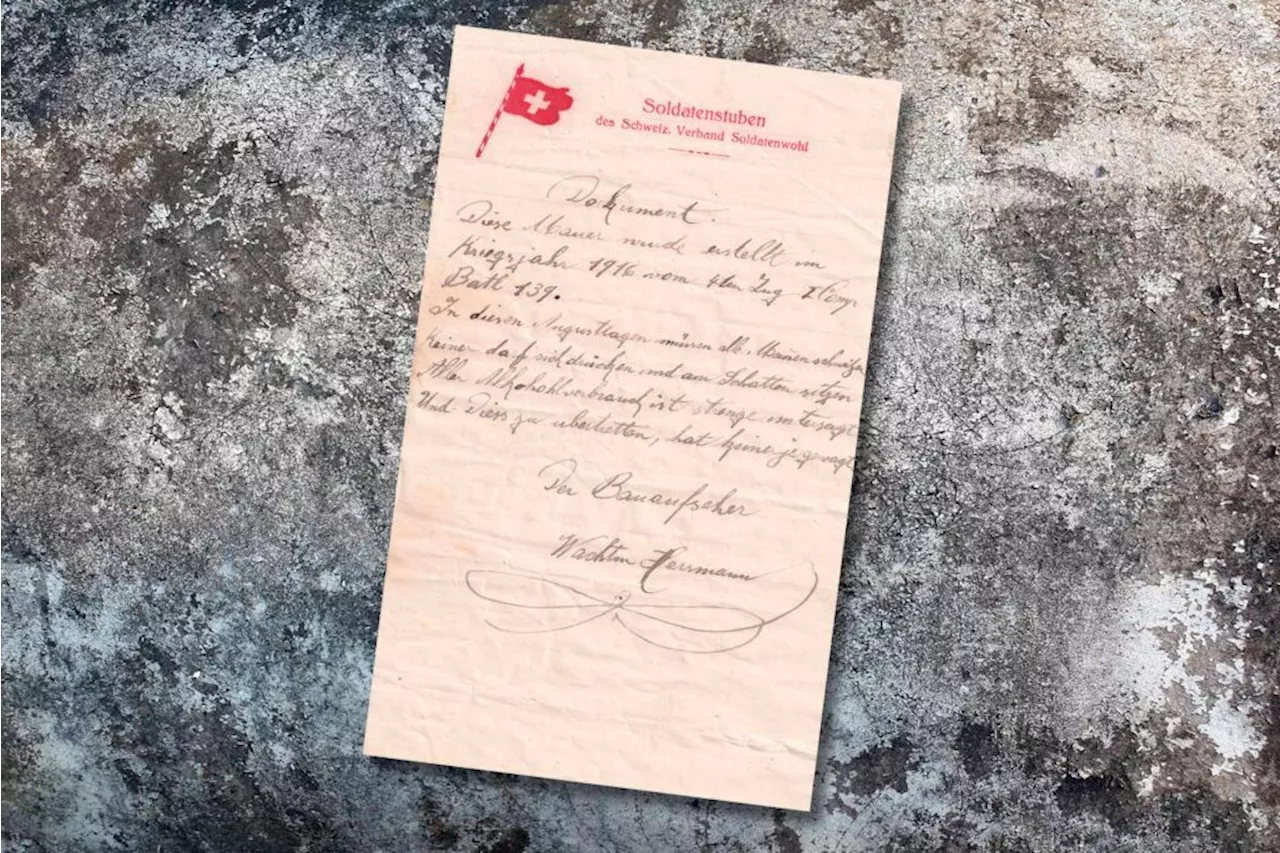 Soldatenstuben
des Schweiz. Verband Soldatenwohl
Dokument.
Diese Mauer wurde erstellt im
Kriegsjahr 1916 vom 4ten Zug I Comp.
Batl 139.
In diesen Augusttagen müssen alle Mannen schwitzen
Keiner darf sich drücken und am Schatten sitzen
Aller Alkoholverbrauch ist strenge untersagt
Und Diess zu übertretten, hat keiner je gewagt
Der Bauaufseher
Wachtm Herrmann